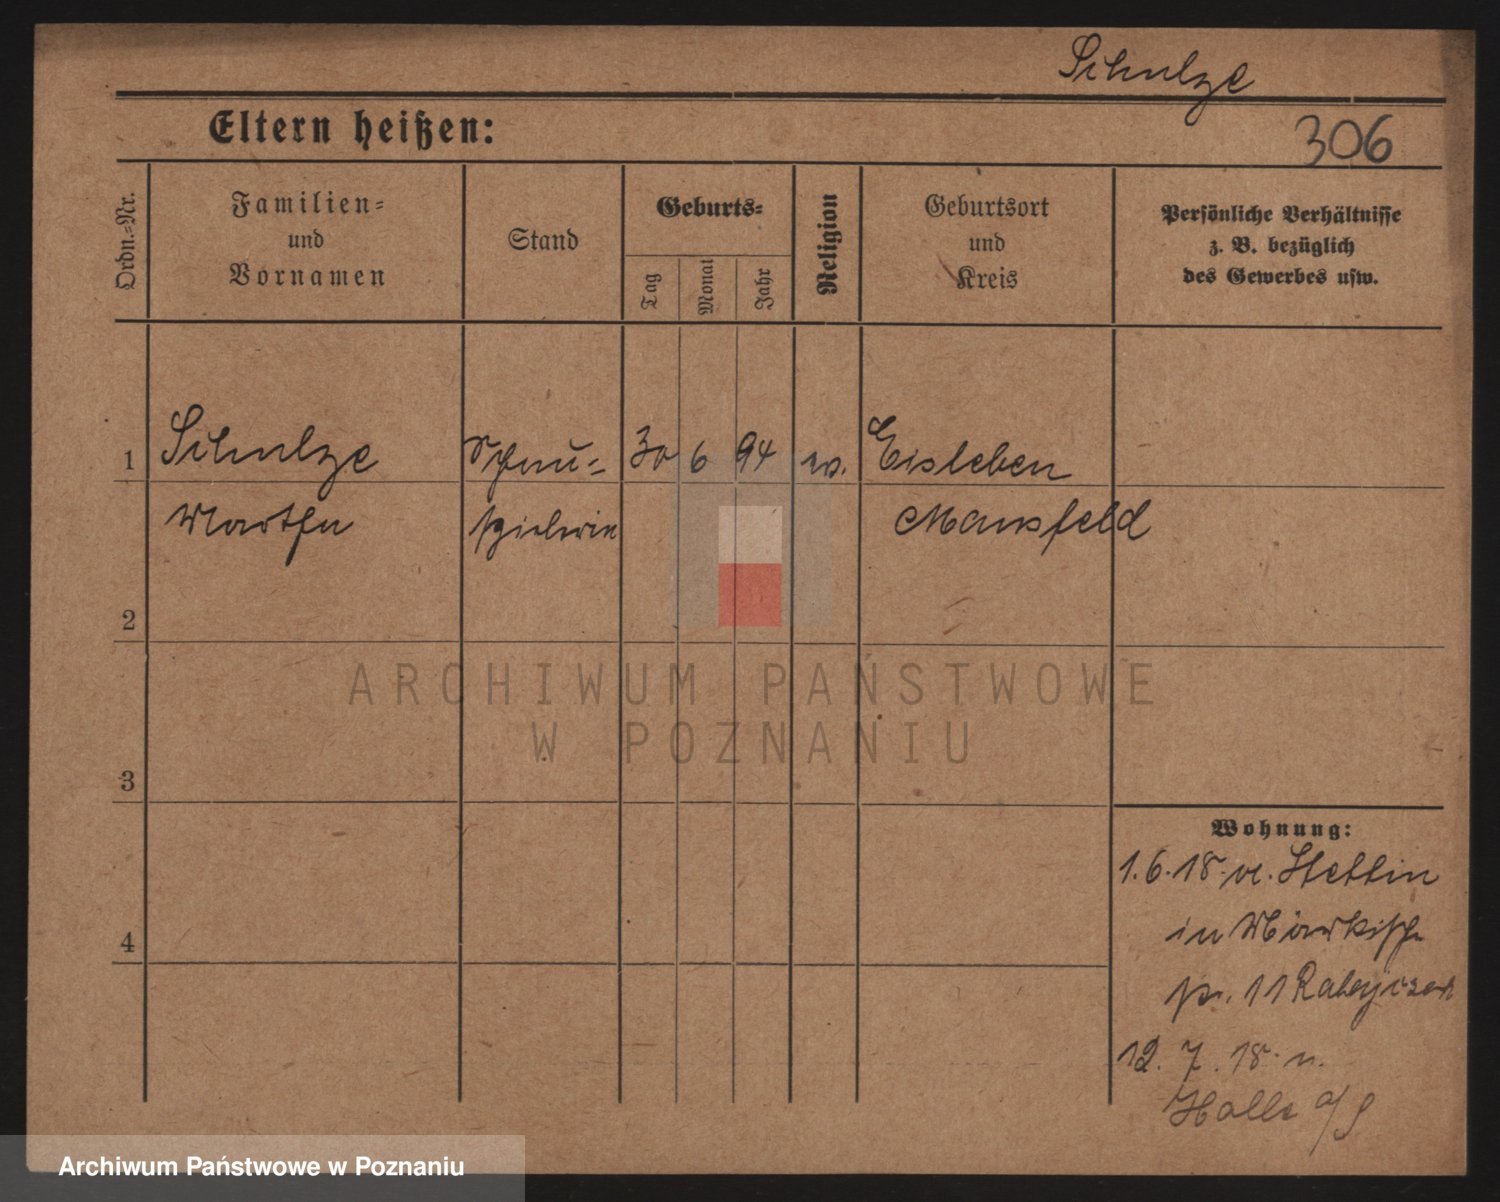 Schulze
Eltern heißen:
306
Ordn.=Nr.
Familien=
und
Vornamen
Stand
Geburts=
Tag
Monat
Jahr
Religion
Geburtsort
und
Kreis
Persönliche Verhältnisse
z. B. bezüglich
des Gewerbes usw.
1
Schulze
Schau=
30 6 94
ev.
Eisleben
Martha
spielerin
Mansfeld
2
ARCHIWUM PAŃSTWOWE
W POZNANIU
3
Wohnung:
1.6.18. v. Stettin
in Märkische
4
str. 11
12. 7. 18. n.
Halle a/S
Archiwum Państwowe w Poznaniu